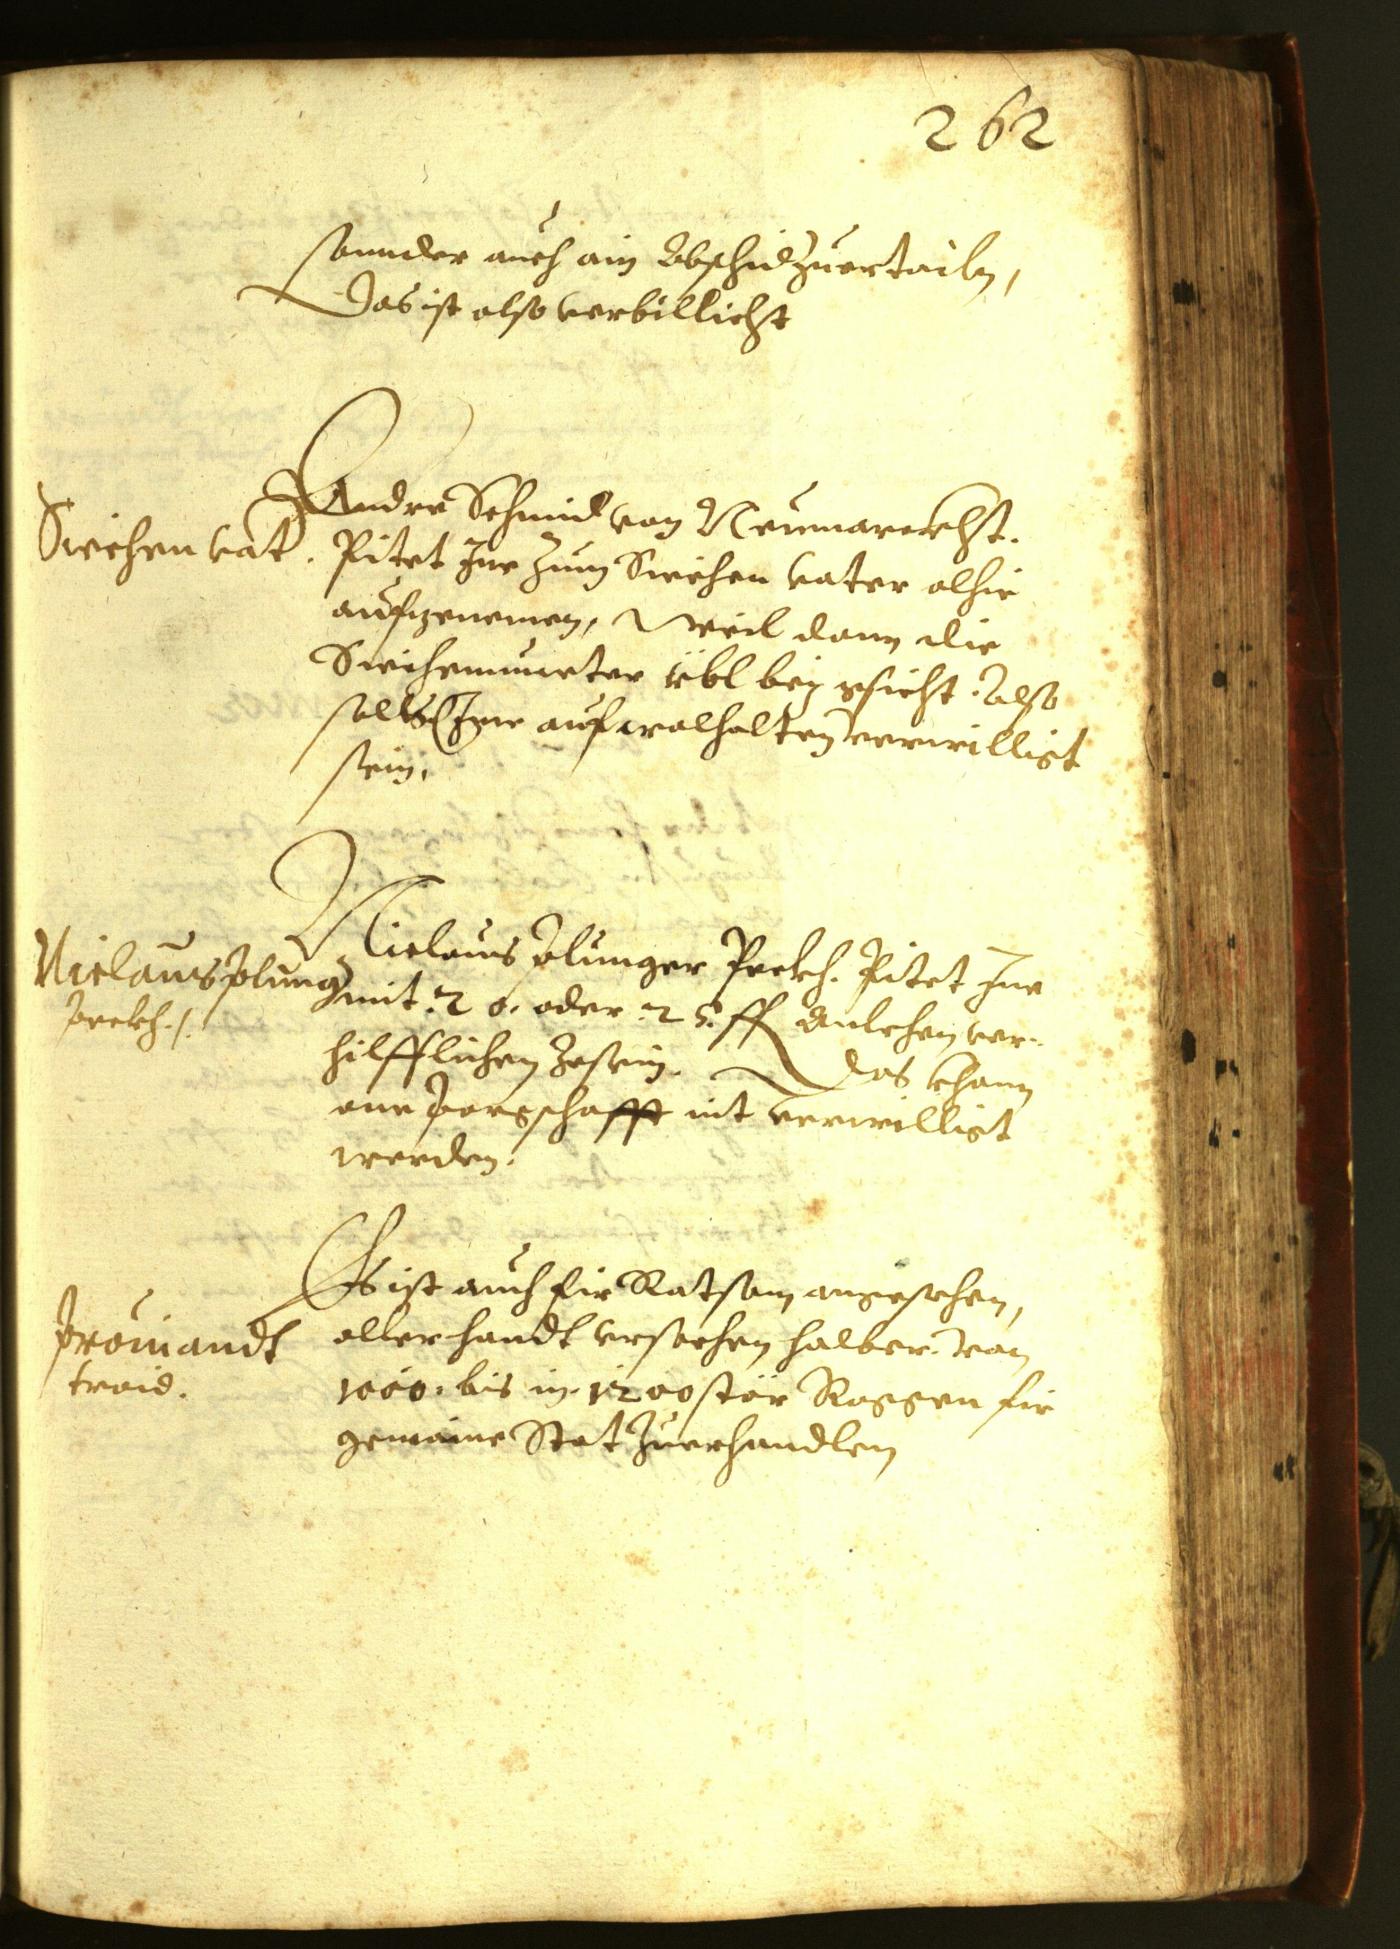 262
sonnder auch ain Abschid zuertailn,
Das ist also verbillicht
Siechen vat.
Andre Schmid von Neumarckht.
Pitet Ine zum Siechen vater alhie
aufzenemen, Weil dann die
Siechenmueter übl bey gsicht. Also
solls Ine auf wolhalten verwilligt
sein.
Niclaus Plung
Peckh./.
Niclaus Plunger Peckh. Pitet Ine
mit .20. oder .25. ff Anlehen ver-
hilfflichen zesein. Das khann
one Porgschafft nit verwilligt
werden.
Prouiandt
traid.
Es ist auch fir Ratsam angesehen,
allerhandt vrsachen halber. von
1000. bis in. 1200 stär Roggen fir
gemaine Stat zuerhandlen